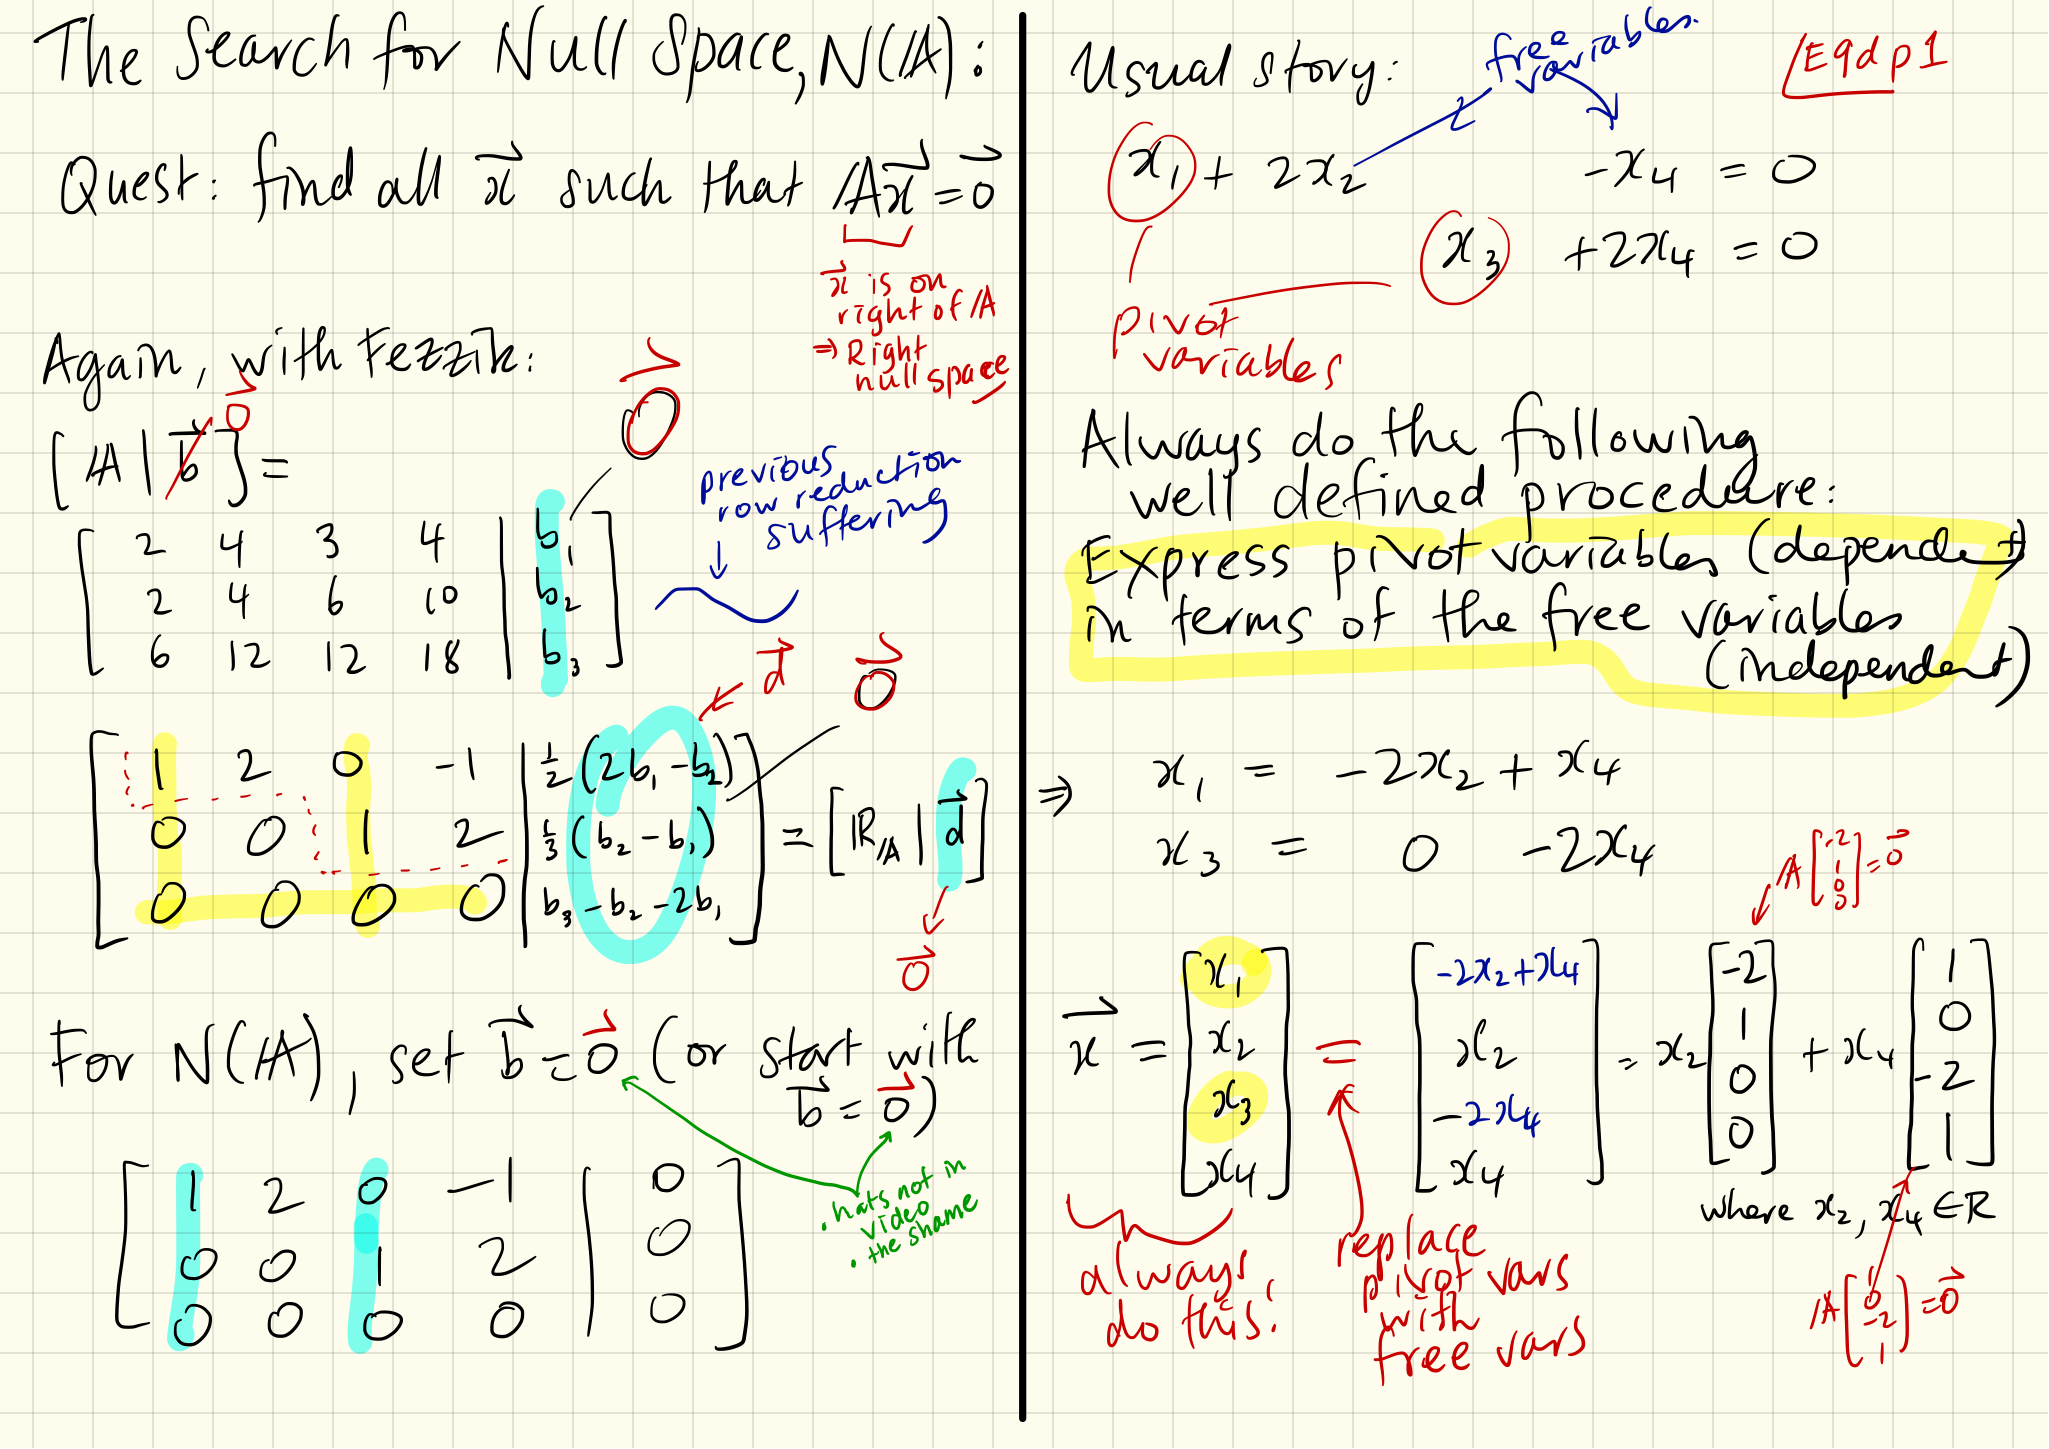 The Search for Null Space, N(A):
Quest: find all x⃗ such that Ax⃗ = 0⃗
x⃗ is on
right of A
⇒ Right
null space
Again, with Fezzik:
[A | b⃗ ] = 0⃗
0⃗
previous
row reduction
suffering
[ 2 4 3 4 | b₁ ]
[ 2 4 6 10 | b₂ ]
[ 6 12 12 18 | b₃ ]
d⃗ 0⃗
[ 1 2 0 -1 | ½(2b₁ - b₂) ]
[ 0 0 1 2 | ⅓(b₂ - b₁) ] = [R_A | d⃗]
[ 0 0 0 0 | b₃ - b₂ - 2b₁ ]
0⃗
For N(A), set b⃗ = 0⃗ (or start with
b⃗ = 0⃗)
• hats not in
video
• the shame
[ 1 2 0 -1 | 0 ]
[ 0 0 1 2 | 0 ]
[ 0 0 0 0 | 0 ]
E9dp1
Usual story:
free
variables.
x₁ + 2x₂ -x₄ = 0
x₃ +2x₄ = 0
pivot
variables
Always do the following
well defined procedure:
Express pivot variables (dependent)
in terms of the free variables
(independent)
⇒ x₁ = -2x₂ + x₄
x₃ = 0 -2x₄
A [ -2 1 0 0 ] = 0⃗
x⃗ = [ x₁ x₂ x₃ x₄ ] = [ -2x₂+x₄ x₂ -2x₄ x₄ ] = x₂ [ -2 1 0 0 ] + x₄ [ 1 0 -2 1 ]
where x₂, x₄ ∈ R
always
do this!
replace
pivot vars
with
free vars
A [ 1 0 -2 1 ] = 0⃗